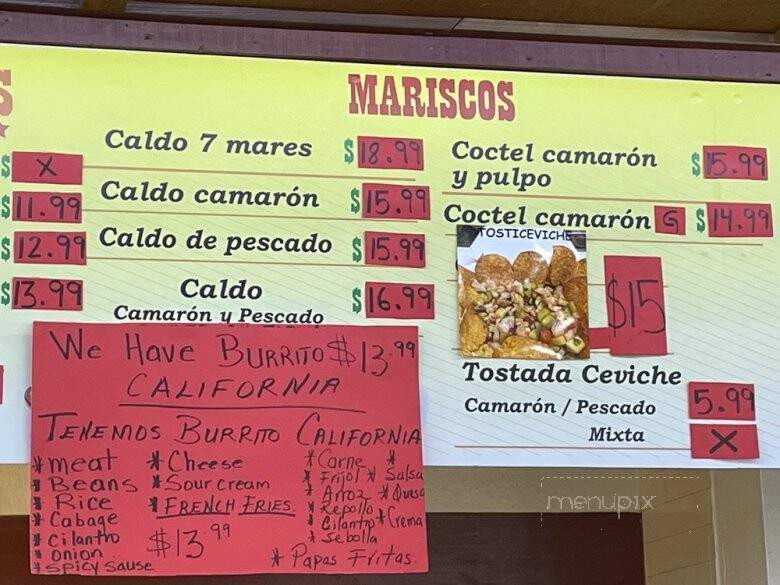 MARISCOS
S
$ X
$11.99
$12.99
$13.99
Caldo 7 mares $18.99
Caldo camarón $15.99
Caldo de pescado $15.99
Caldo $16.99
Camarón y Pescado
Coctel camarón $15.99
y pulpo
Coctel camarón G $14.99
TOSTICEVICHE
$15
Tostada Ceviche
Camarón / Pescado 5.99
Mixta X
We Have BURRITO $13.99
CALIFORNIA
TENEMOS BURRITO CALIFORNIA
*meat
*Beans
*Rice
*Cabage
*cilantro
*onion
*spicy sause
*Cheese
*Sour cream
*FRENCH FRIES
$13.99
*Carne
*Frijol *Salsa
*Arroz *Queso
*Repollo
*Cilantro *Crema
*Sebolla
*Papas Fritas.
menupix